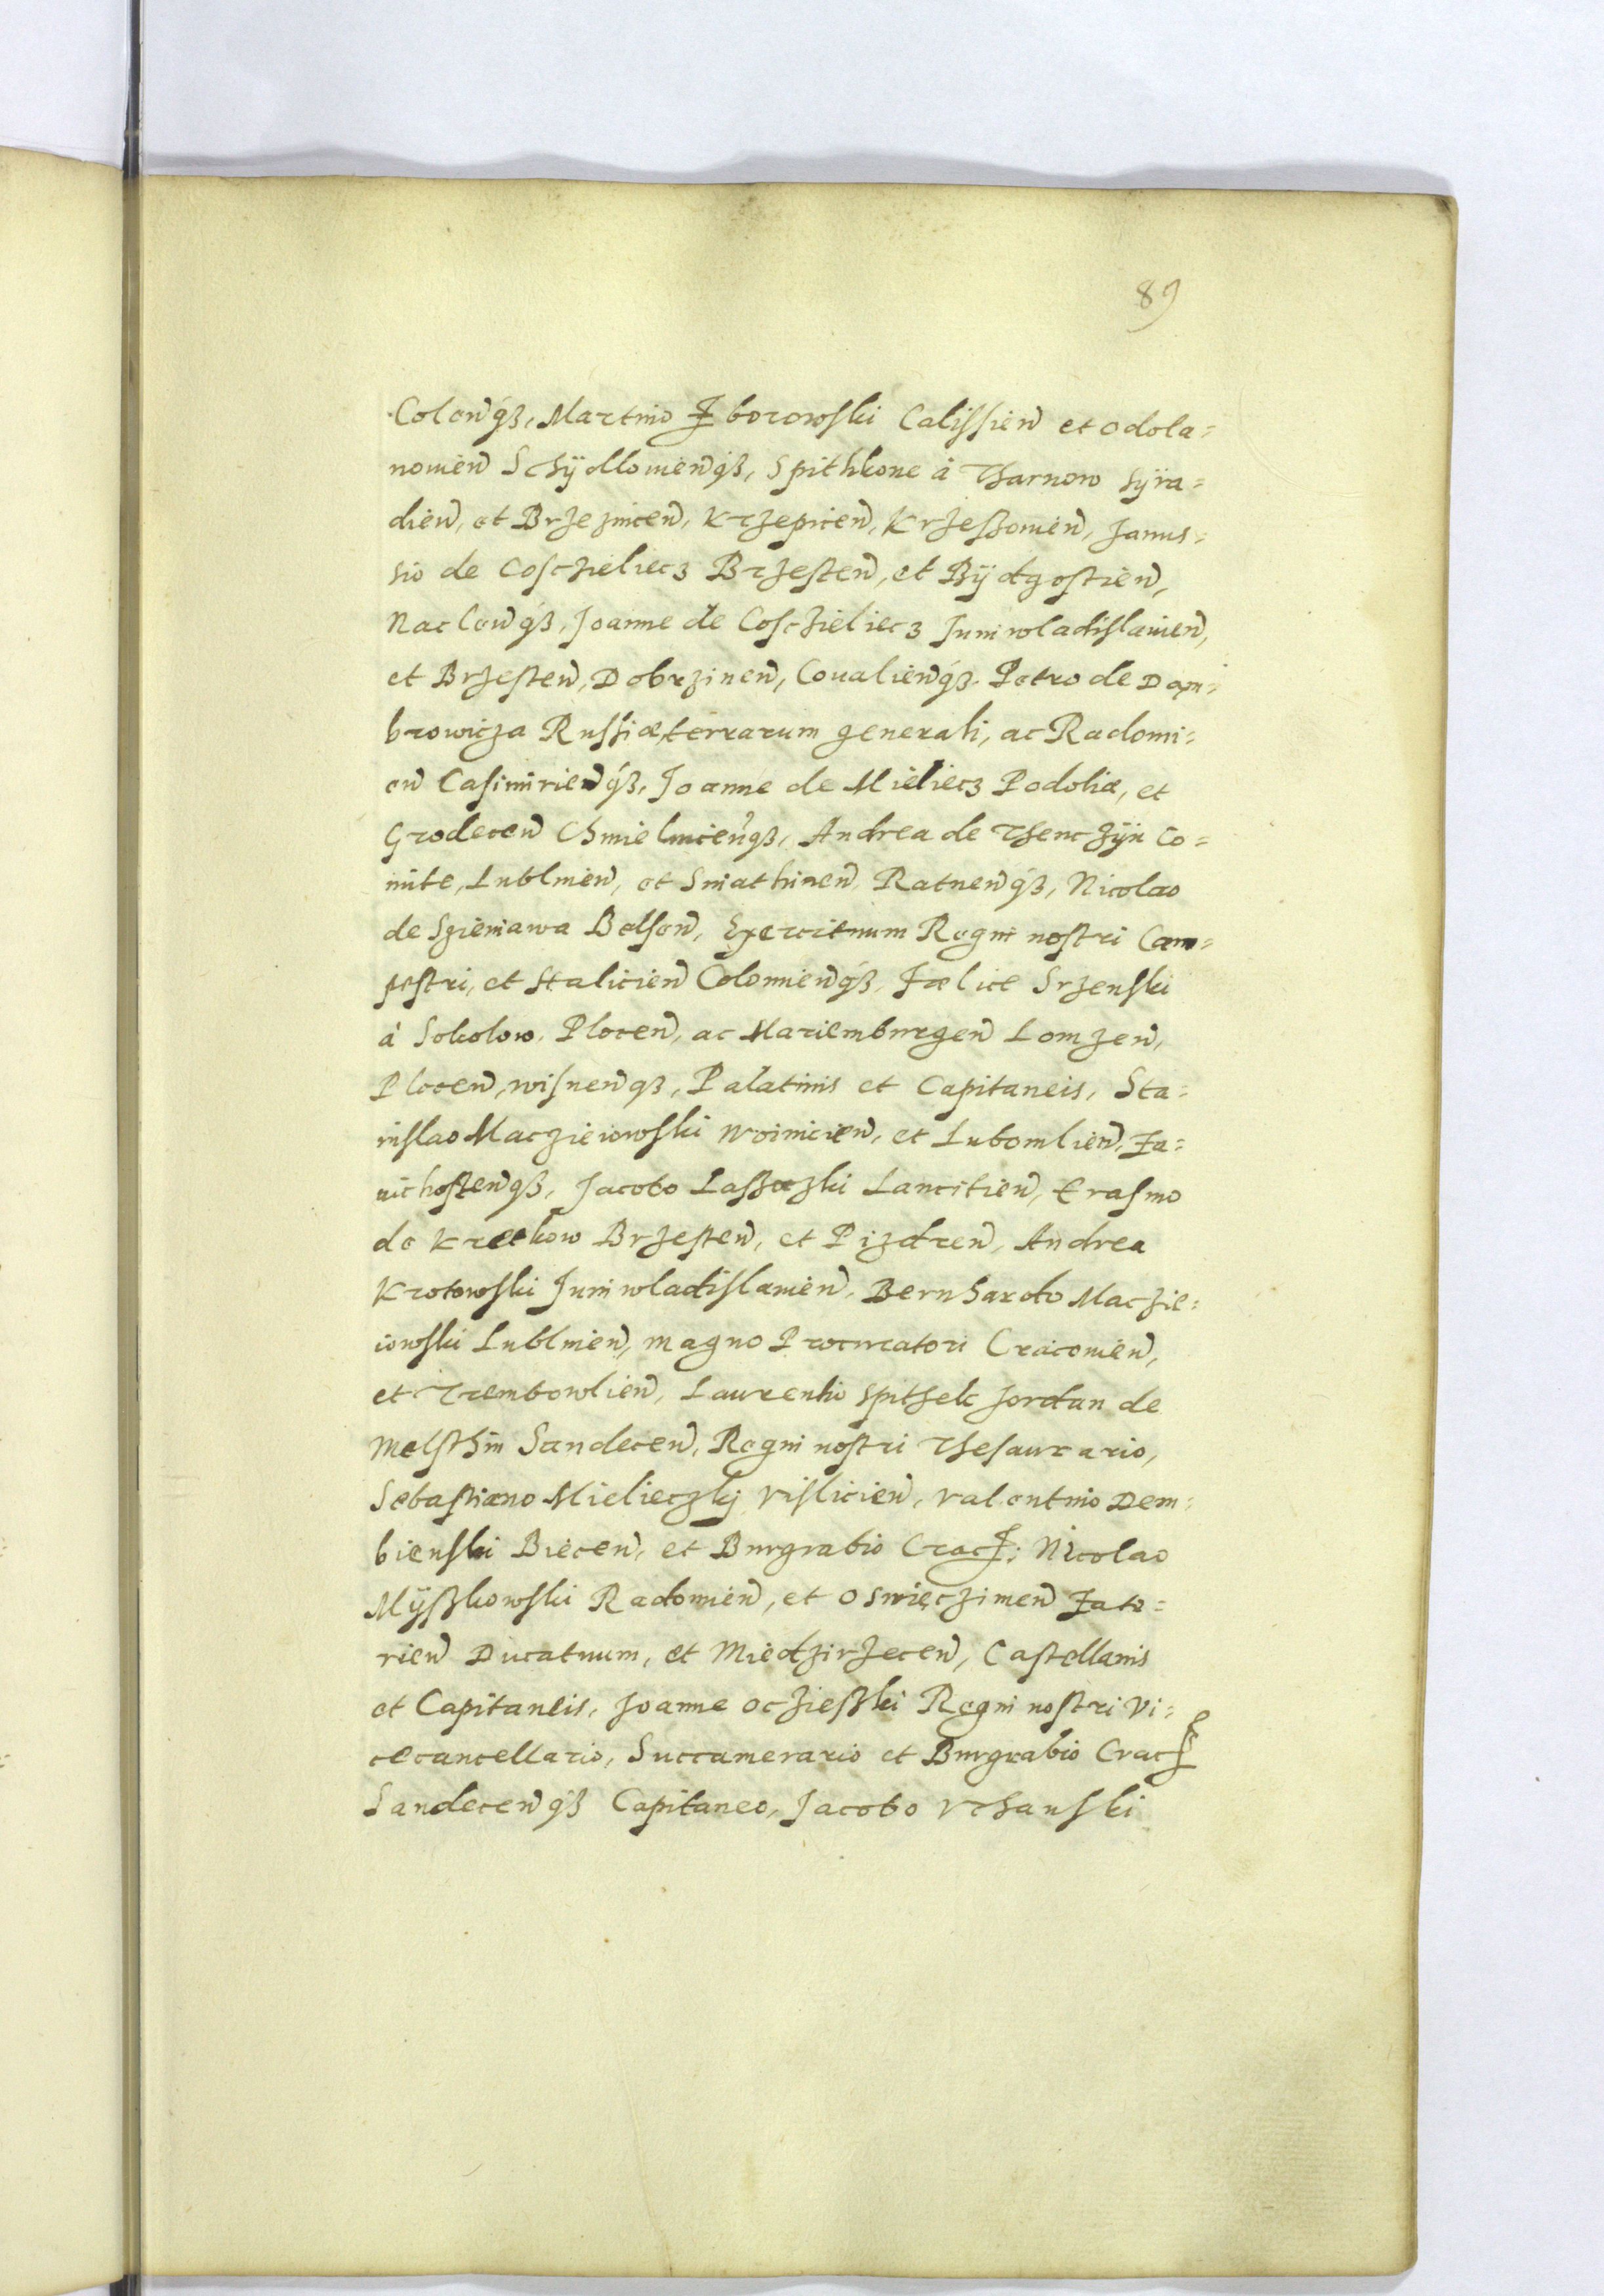 89
Colen̄q́ꝫ, Martino Zborowski Calissien̄ et Odola=
nowien̄ Schÿdlowien̄q́ꝫ, Spithkone à Tharnow Sÿra=
dien̄, et Brzeznicen̄, Krzepicen̄, Krzeszowien̄, Janus=
sio de Cosczieliecz Brzesten̄, et Bÿdgostien̄,
Naclen̄q́ꝫ, Joanne de Cosczieliecz Juniwladislauien̄,
et Brzesten̄, Dobrzinen̄, Coualien̄q́ꝫ. Petro de Dam=
browicza Russiæ, terrarum generali, ac Radomi=
en̄ Casimirien̄q́ꝫ, Joanne de Mieliecz Podoliæ, et
Grodecen̄ Chmielnicen̄q́ꝫ, Andrea de Thenczÿn Co=
mite, Lublinen̄, et Sniathinen̄ Ratnen̄q́ꝫ, Nicolao
de Szieniawa Belsen̄, Exercituum Regni nostri Cam=
pestri, et Halicien̄ Colomien̄q́ꝫ, Fælice Srzenski
à Sokolow. Plocen̄, ac Mariemburgen̄ Lomzen̄,
Plocen̄, wisnen̄qꝫ, Palatinis et Capitaneis, Sta=
nislao Macziejowski Woinicien̄, et Lubomlien̄, Za=
uichosten̄qꝫ, Jacobo Lassoczki Lancitien̄, Erasmo
de Kretkow Brzesten̄, et Pizdren̄, Andrea
Krotowski Juniwladislauien̄, Bernhardo Maczie=
iowski Lublinen̄, magno Procuratori Cracouien̄,
et Trembowlien̄, Laurentio Spithek Jordan de
Melsthin Sandecen̄, Regni nostri Thesaurario,
Sebastiano Mielieczkj Vislicien̄, Valentino Dem=
bienski Biecen̄, et Burgrabio Crac̄; Nicolao
Mÿszkowski Radomien̄, et Oswięczimen̄ Zato=
rien̄ Ducatuum, et Miedzirzecen̄, Castellanis
et Capitaneis, Joanne Oczieszki Regni nostri Vi=
cecancellario, Succamerario et Burgrabio Crac̄
Sandecen̄q́ꝫ Capitaneo, Jacobo Vchanski